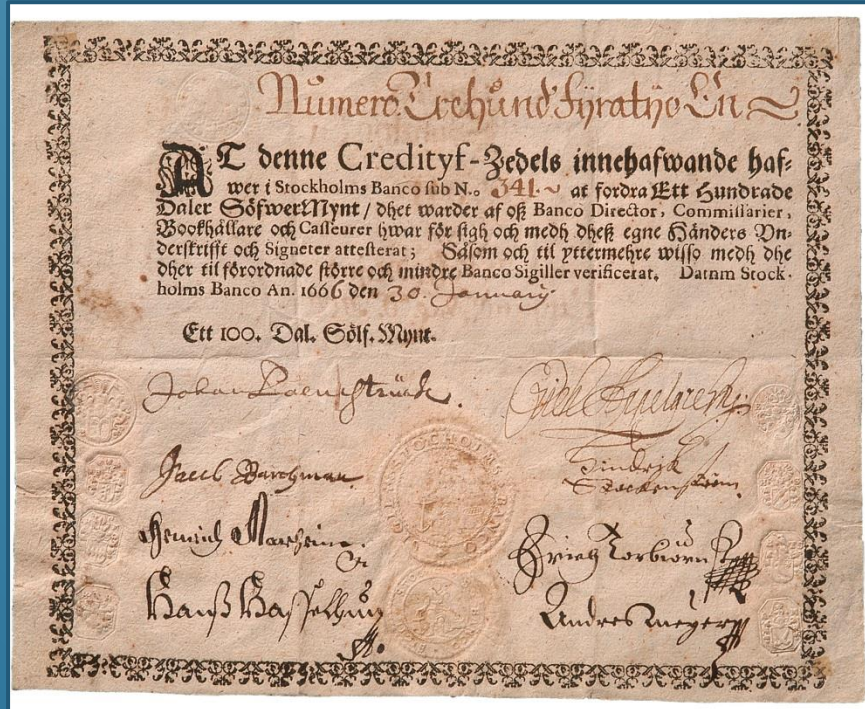 Numero Trehund fyratijo En
AT denne Credityf-Zedels innehafwande haf-
wer i Stockholms Banco sub N.o 341. at fordra Ett Hundrade
Daler SöfwerMynt / dhet warder af oß Banco Director, Commissarier,
Bookhållare och Casseurer hwar för sigh och medh dheß egne Händers Vn-
derskrifft och Signeter attesterat; Såsom och til yttermehre wisso medh dhe
dher til förordnade större och mindre Banco Sigiller verificerat. Datnm Stock-
holms Banco An. 1666 den 30. January.
Ett 100. Dal. Sölf. Mynt.
Johan
Jacob
Hindrich
Henrich
Erich Torbiörn
Hanß
Andres Meyer
STOCHOLMS BANCO